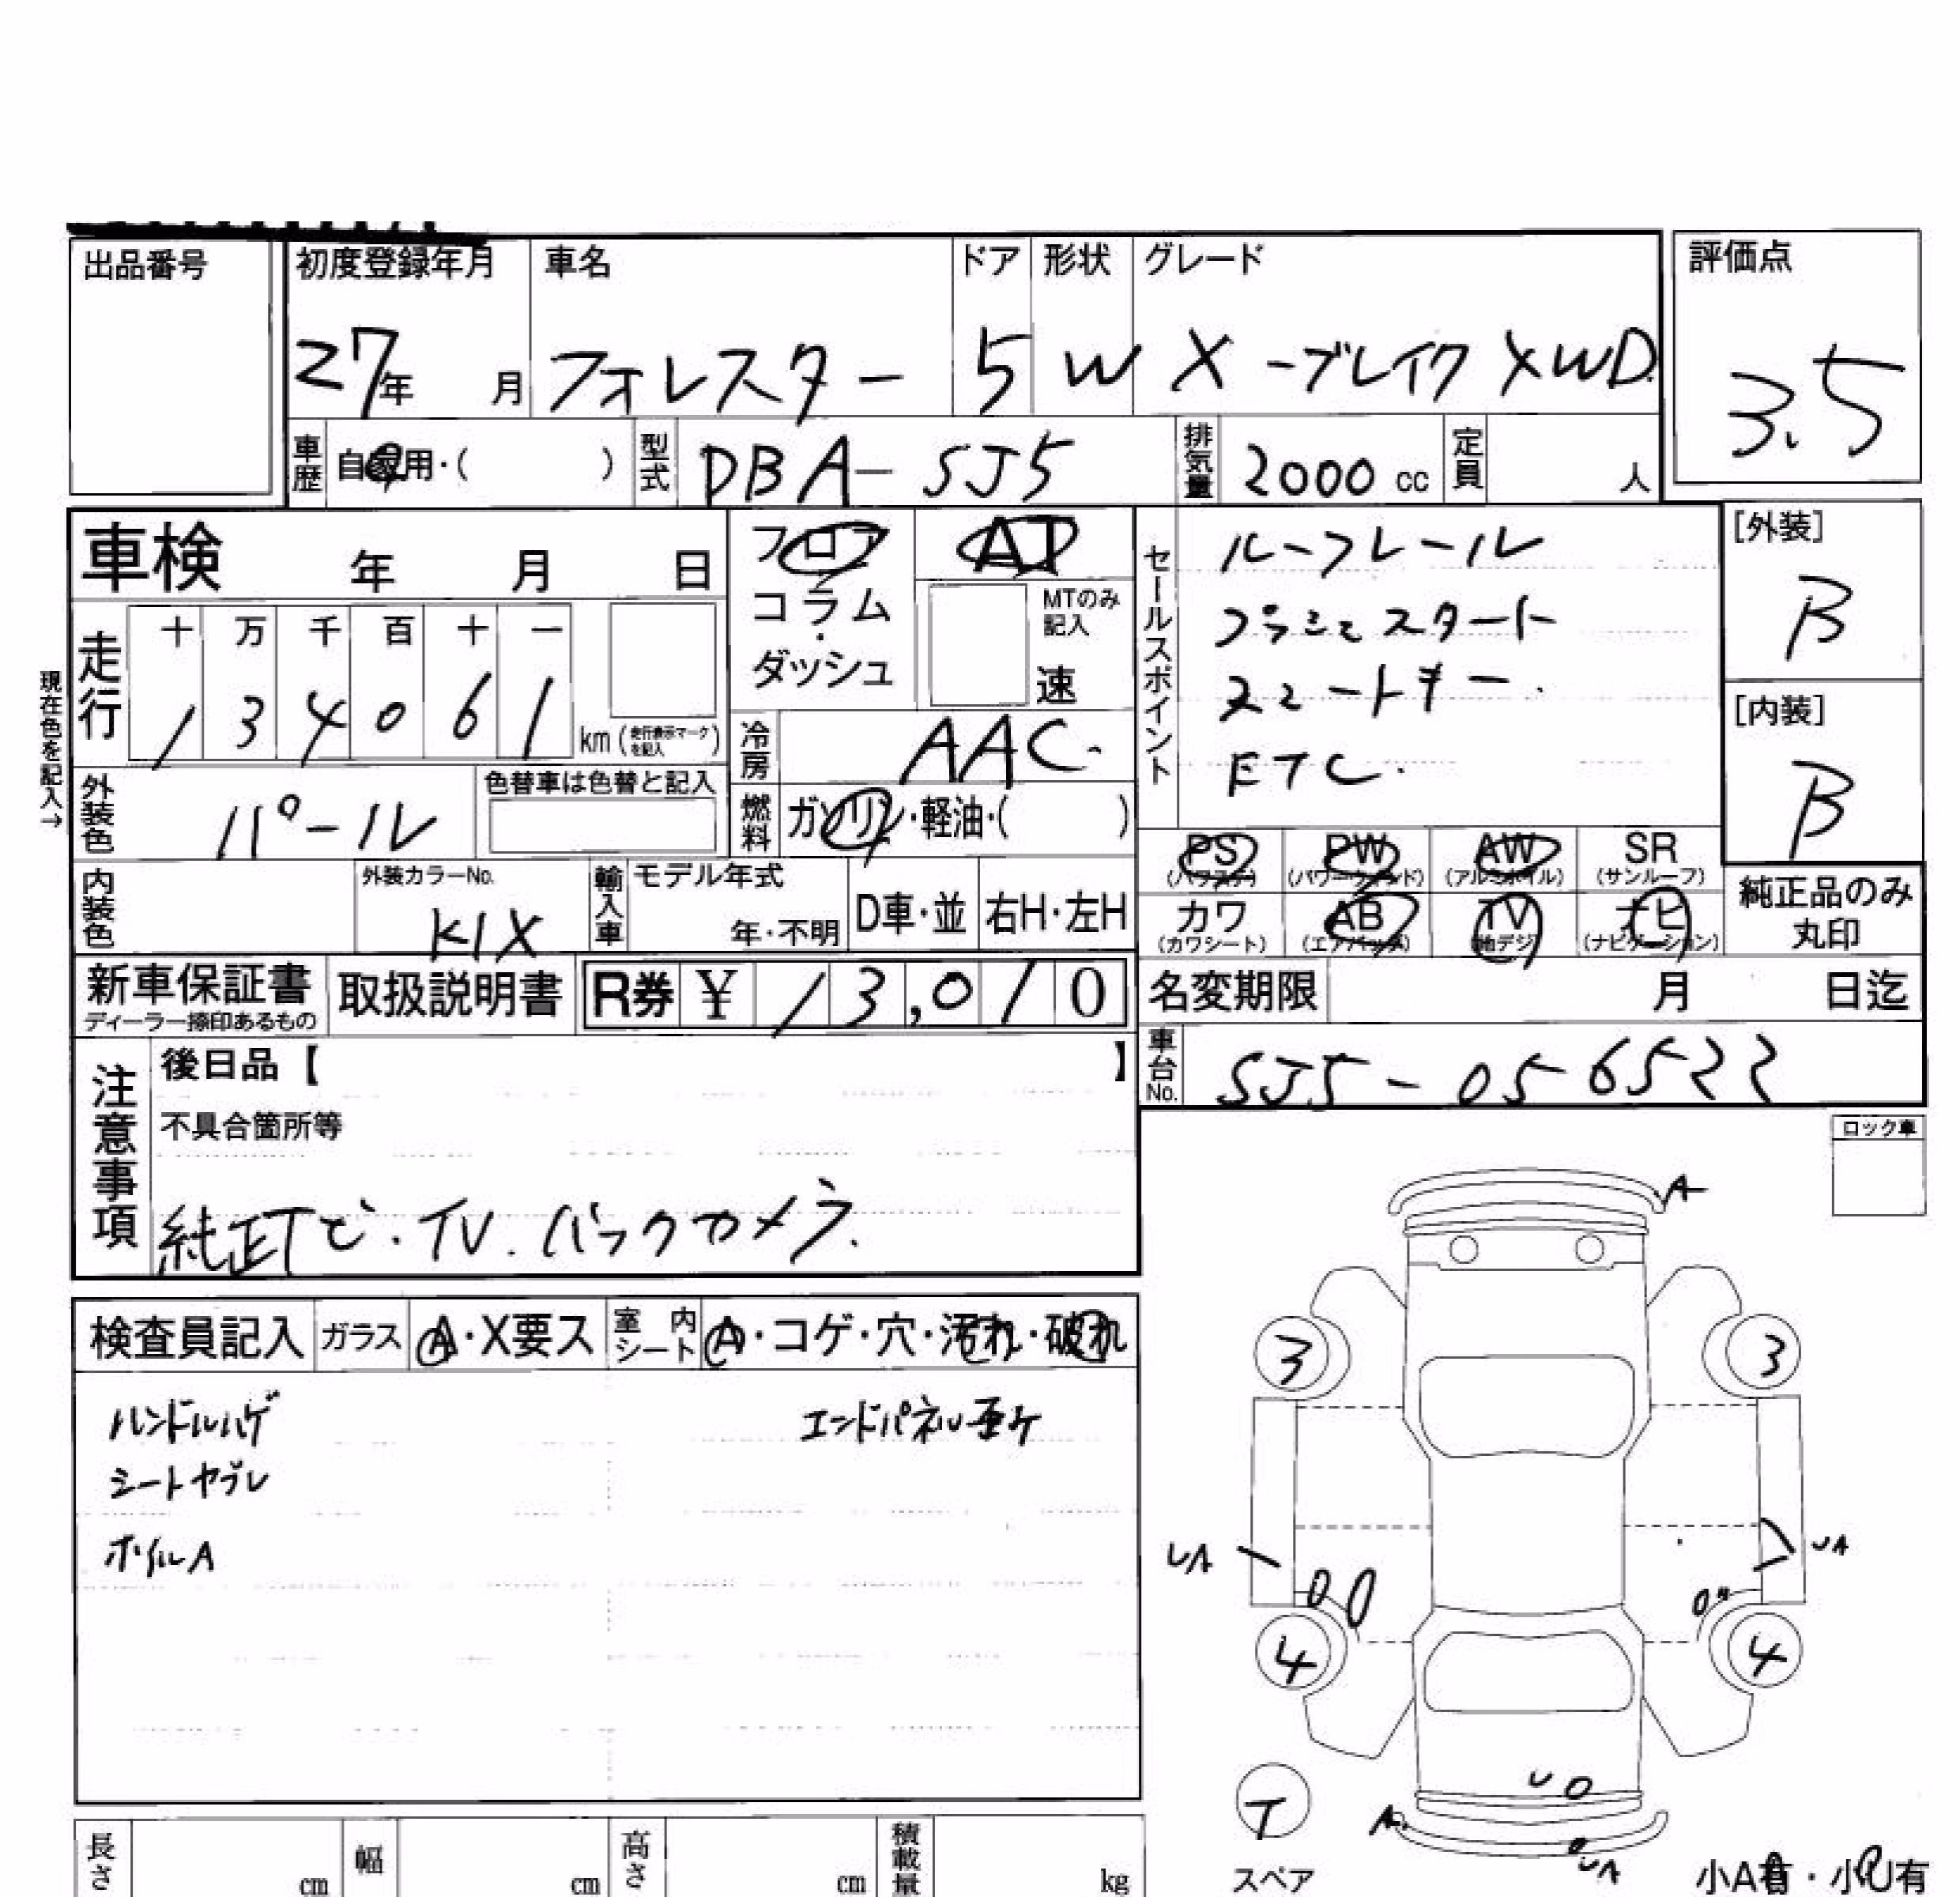 出品番号
初度登録年月 車名 ドア 形状 グレード 評価点
27年 月 フォレスター 5 W X-ブレイク XWD 3.5
車歴 自家用・( ) 型式 DBA-SJ5 排気量 2000 cc 定員 人
車検 年 月 日
フロア AT
コラム・
ダッシュ
MTのみ記入
速
セールスポイント
ルーフレール
プッシュスタート
スマートキー.
ETC.
[外装]
B
[内装]
B
現在色を記入→
走行 十 万 千 百 十 一
1 3 4 0 6 1 km (走行表示マークを記入)
冷房 AAC.
外装色 パール 色替車は色替と記入
燃料 ガソリン・軽油・( )
PS (パワステ) PW (パワーウィンド) AW (アルミホイル) SR (サンルーフ)
カワ (カワシート) AB (エアバッグ) TV (地デジ) ナビ (ナビゲーション)
純正品のみ
丸印
内装色 外装カラーNo. K1X 輸入車 モデル年式 年・不明 D車・並 右H・左H
新車保証書 取扱説明書 R券 ¥ 13,010
ディーラー捺印あるもの
名変期限 月 日迄
車台No. SJ5-056522
注意事項
後日品【 】
不具合箇所等
純正ナビ・TV.バックカメラ.
ロック車
検査員記入 ガラス A・X要ス 室内シート A・コゲ・穴・汚れ・破れ
ハンドルハゲ エンドパネル歪ケ
シートヤブレ
ホイルA
A
3 3
UA UA
4 4
U
T A
UA
スペア 小A有・小U有
長さ cm 幅 cm 高さ cm 積載量 kg